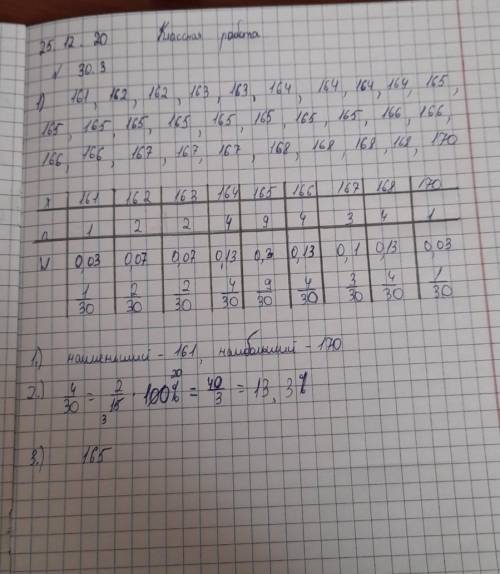 25.12.20 Классная работа
№ 30.3
1) 161, 162, 162, 163, 163, 164, 164, 164, 164, 165,
165, 165, 165, 165, 165, 165, 165, 165, 166, 166,
166, 166, 167, 167, 167, 168, 168, 168, 168, 170
x 161 162 163 164 165 166 167 168 170
n 1 2 2 4 9 4 3 4 1
W 0,03 0,07 0,07 0,13 0,3 0,13 0,1 0,13 0,03
1/30 2/30 2/30 4/30 9/30 4/30 3/30 4/30 1/30
1.) наименьший - 161, наибольший - 170
2.) 4/30 = 2/15 · 100% = 40/3 = 13,3%
3 20
3.) 165